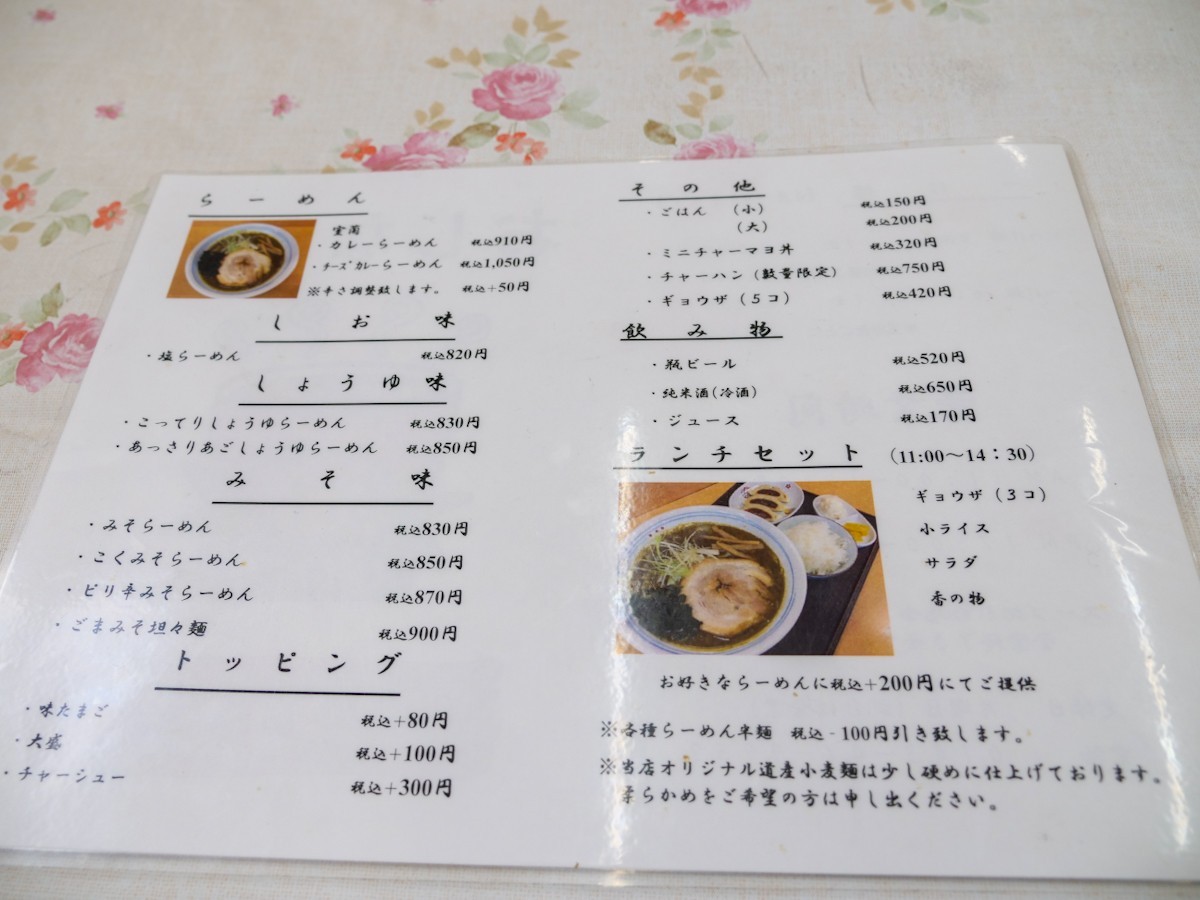 らーめん
室蘭
・カレーらーめん 税込910円
・チーズカレーらーめん 税込1,050円
※辛さ調整致します。 税込+50円
しお味
・塩らーめん 税込820円
しょうゆ味
・こってりしょうゆらーめん 税込830円
・あっさりあごしょうゆらーめん 税込850円
みそ味
・みそらーめん 税込830円
・こくみそらーめん 税込850円
・ピリ辛みそらーめん 税込870円
・ごまみそ坦々麺 税込900円
トッピング
・味たまご 税込+80円
・大盛 税込+100円
・チャーシュー 税込+300円
その他
・ごはん (小) 税込150円
(大) 税込200円
・ミニチャーマヨ丼 税込320円
・チャーハン(数量限定) 税込750円
・ギョウザ(5コ) 税込420円
飲み物
・瓶ビール 税込520円
・純米酒(冷酒) 税込650円
・ジュース 税込170円
ランチセット (11:00〜14:30)
ギョウザ(3コ)
小ライス
サラダ
香の物
お好きならーめんに税込+200円にてご提供
※各種らーめん半麺 税込-100円引き致します。
※当店オリジナル道産小麦麺は少し硬めに仕上げております。
柔らかめをご希望の方は申し出ください。